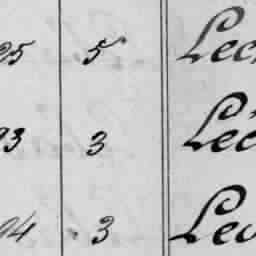 25 5 Lec
93 3 Léc
94 3 Lev